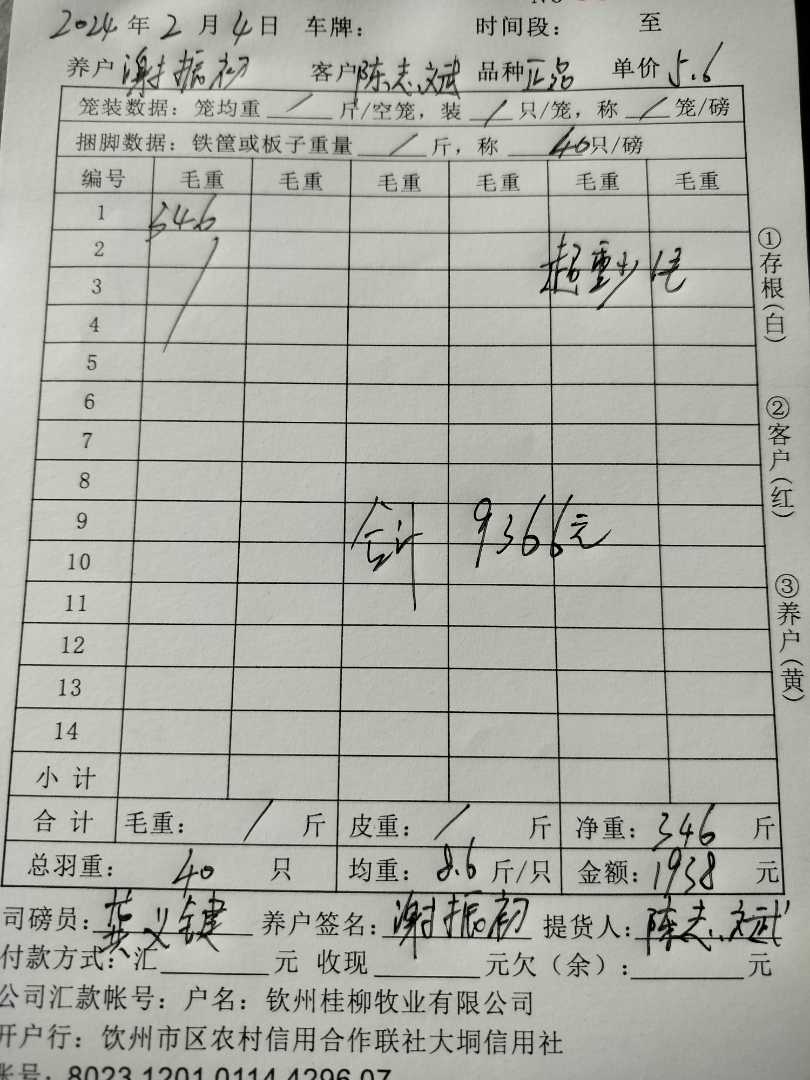 2024年2月4日 车牌： 时间段： 至
养户 谢振初 客户 陈志斌 品种 正品 单价 5.6
笼装数据：笼均重 / 斤/空笼，装 / 只/笼，称 / 笼/磅
捆脚数据：铁筐或板子重量 / 斤，称 40只/磅
编号 毛重 毛重 毛重 毛重 毛重 毛重
1 346
2
3
4
5
6
7
8
9 合计 9366元
10
11
12
13
14
小计
合计 毛重： / 斤 皮重： / 斤 净重：346 斤
总羽重： 40 只 均重：8.6 斤/只 金额：1938 元
司磅员：龚义键 养户签名：谢振初 提货人：陈志斌
付款方式：汇 元 收现 元欠（余）： 元
公司汇款帐号：户名：钦州桂柳牧业有限公司
开户行：钦州市区农村信用合作联社大垌信用社
帐号：8023 1201 0114 4296 07
①存根(白)
②客户(红)
③养户(黄)